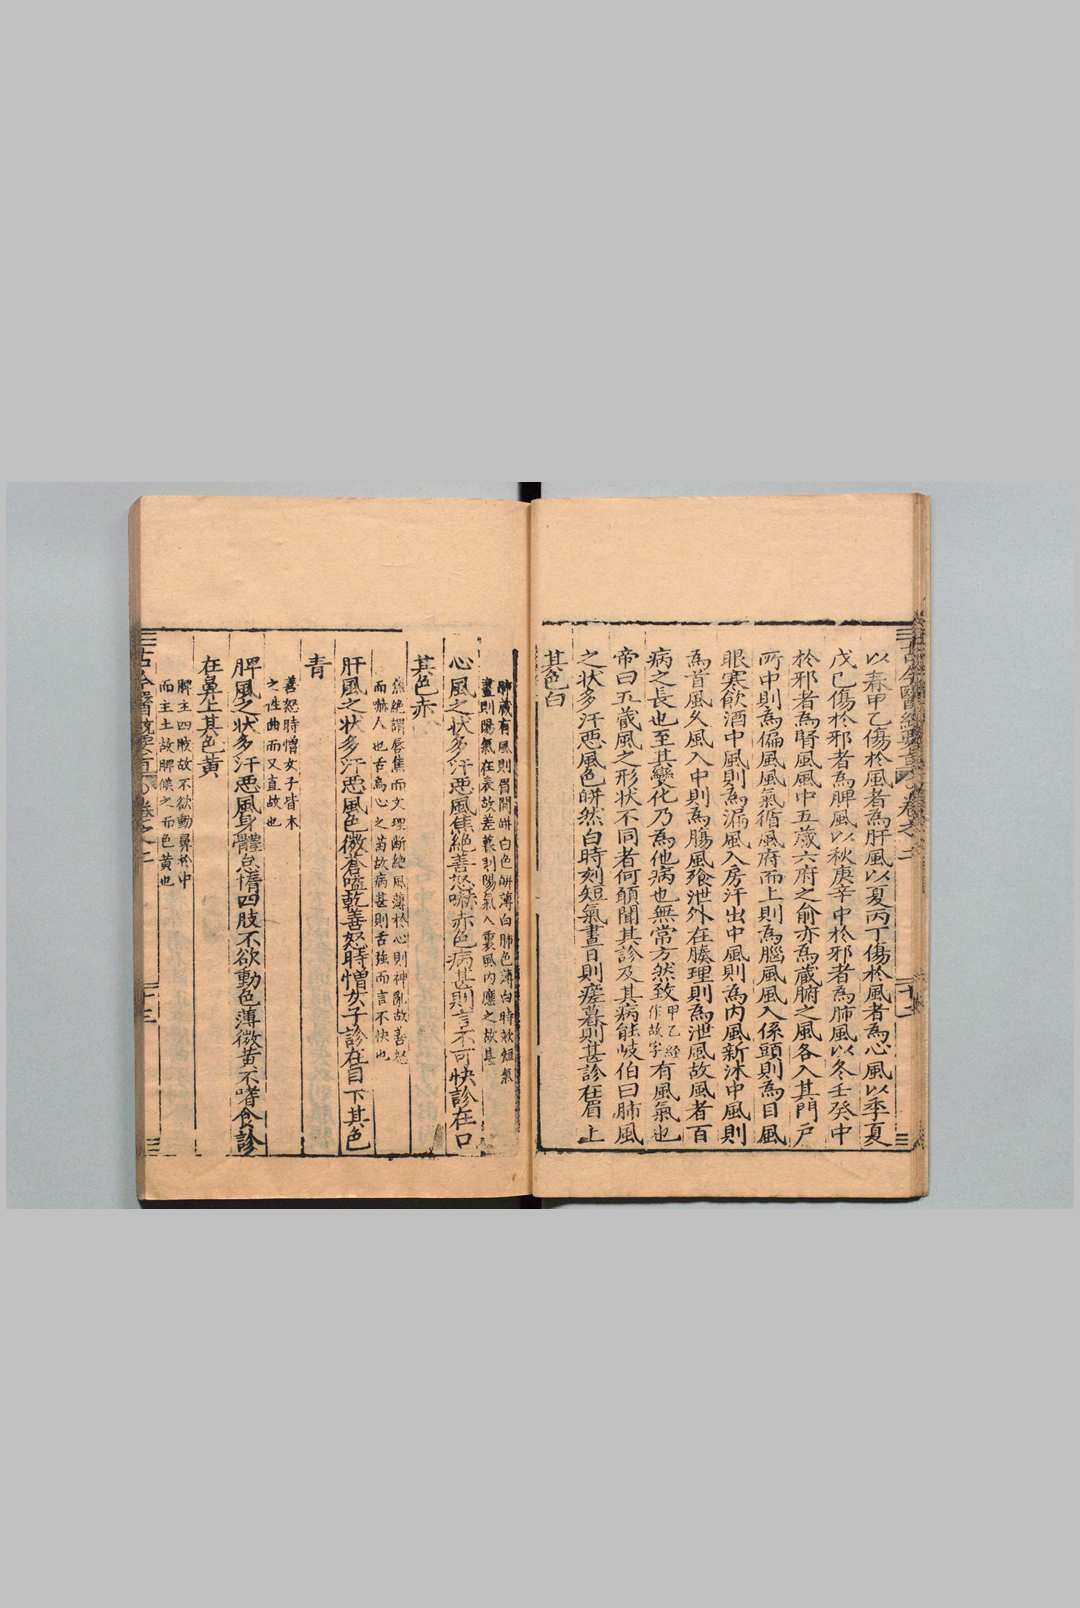 以春甲乙傷於風者為肝風以夏丙丁傷於風者為心風以季夏
戊己傷於邪者為脾風以秋庚辛中於邪者為肺風以冬壬癸中
於邪者為腎風風中五蔵六府之俞亦為蔵腑之風各入其門戸
所中則為偏風風氣循風府而上則為腦風風入係頭則為目風
眼寒飲酒中風則為漏風入房汗出中風則為内風新沐中風則
為首風久風入中則為腸風飱泄外在腠理則為泄風故風者百
病之長也至其變化乃為他病也無常方然致甲乙經作故字有風氣也
帝曰五蔵風之形状不同者何願聞其診及其病能岐伯曰肺風
之状多汗悪風色皏然白時刻短氣晝日則瘥暮則甚診在眉上
其色白
肺蔵有風則眉間皏白色皏薄白肺色薄白時欬短氣
晝則陽氣在表故差暮則陽氣入裏風内應之故甚
心風之状多汗悪風焦絶善怒嚇赤色病甚則言不可快診在口
其色赤
焦絶謂唇焦而文理断絶風薄於心則神亂故善怒
而嚇人也舌為心之苗故病甚則舌強而言不快也
肝風之状多汗悪風色微蒼嗌乾善怒時憎女子診在目下其色
青
善怒時憎女子皆木
之性曲而又直故也
脾風之状多汗悪風身體怠惰四肢不欲動色薄微黄不嗜食診
在鼻上其色黄
脾主四肢故不欲動鼻於中
而主土故脾候之而色黄也
卷之二
十三